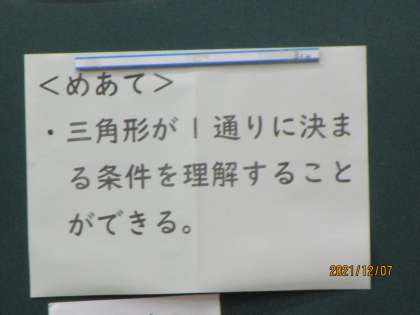 ＜めあて＞
・三角形が１通りに決ま
る条件を理解すること
ができる。
2021/12/07